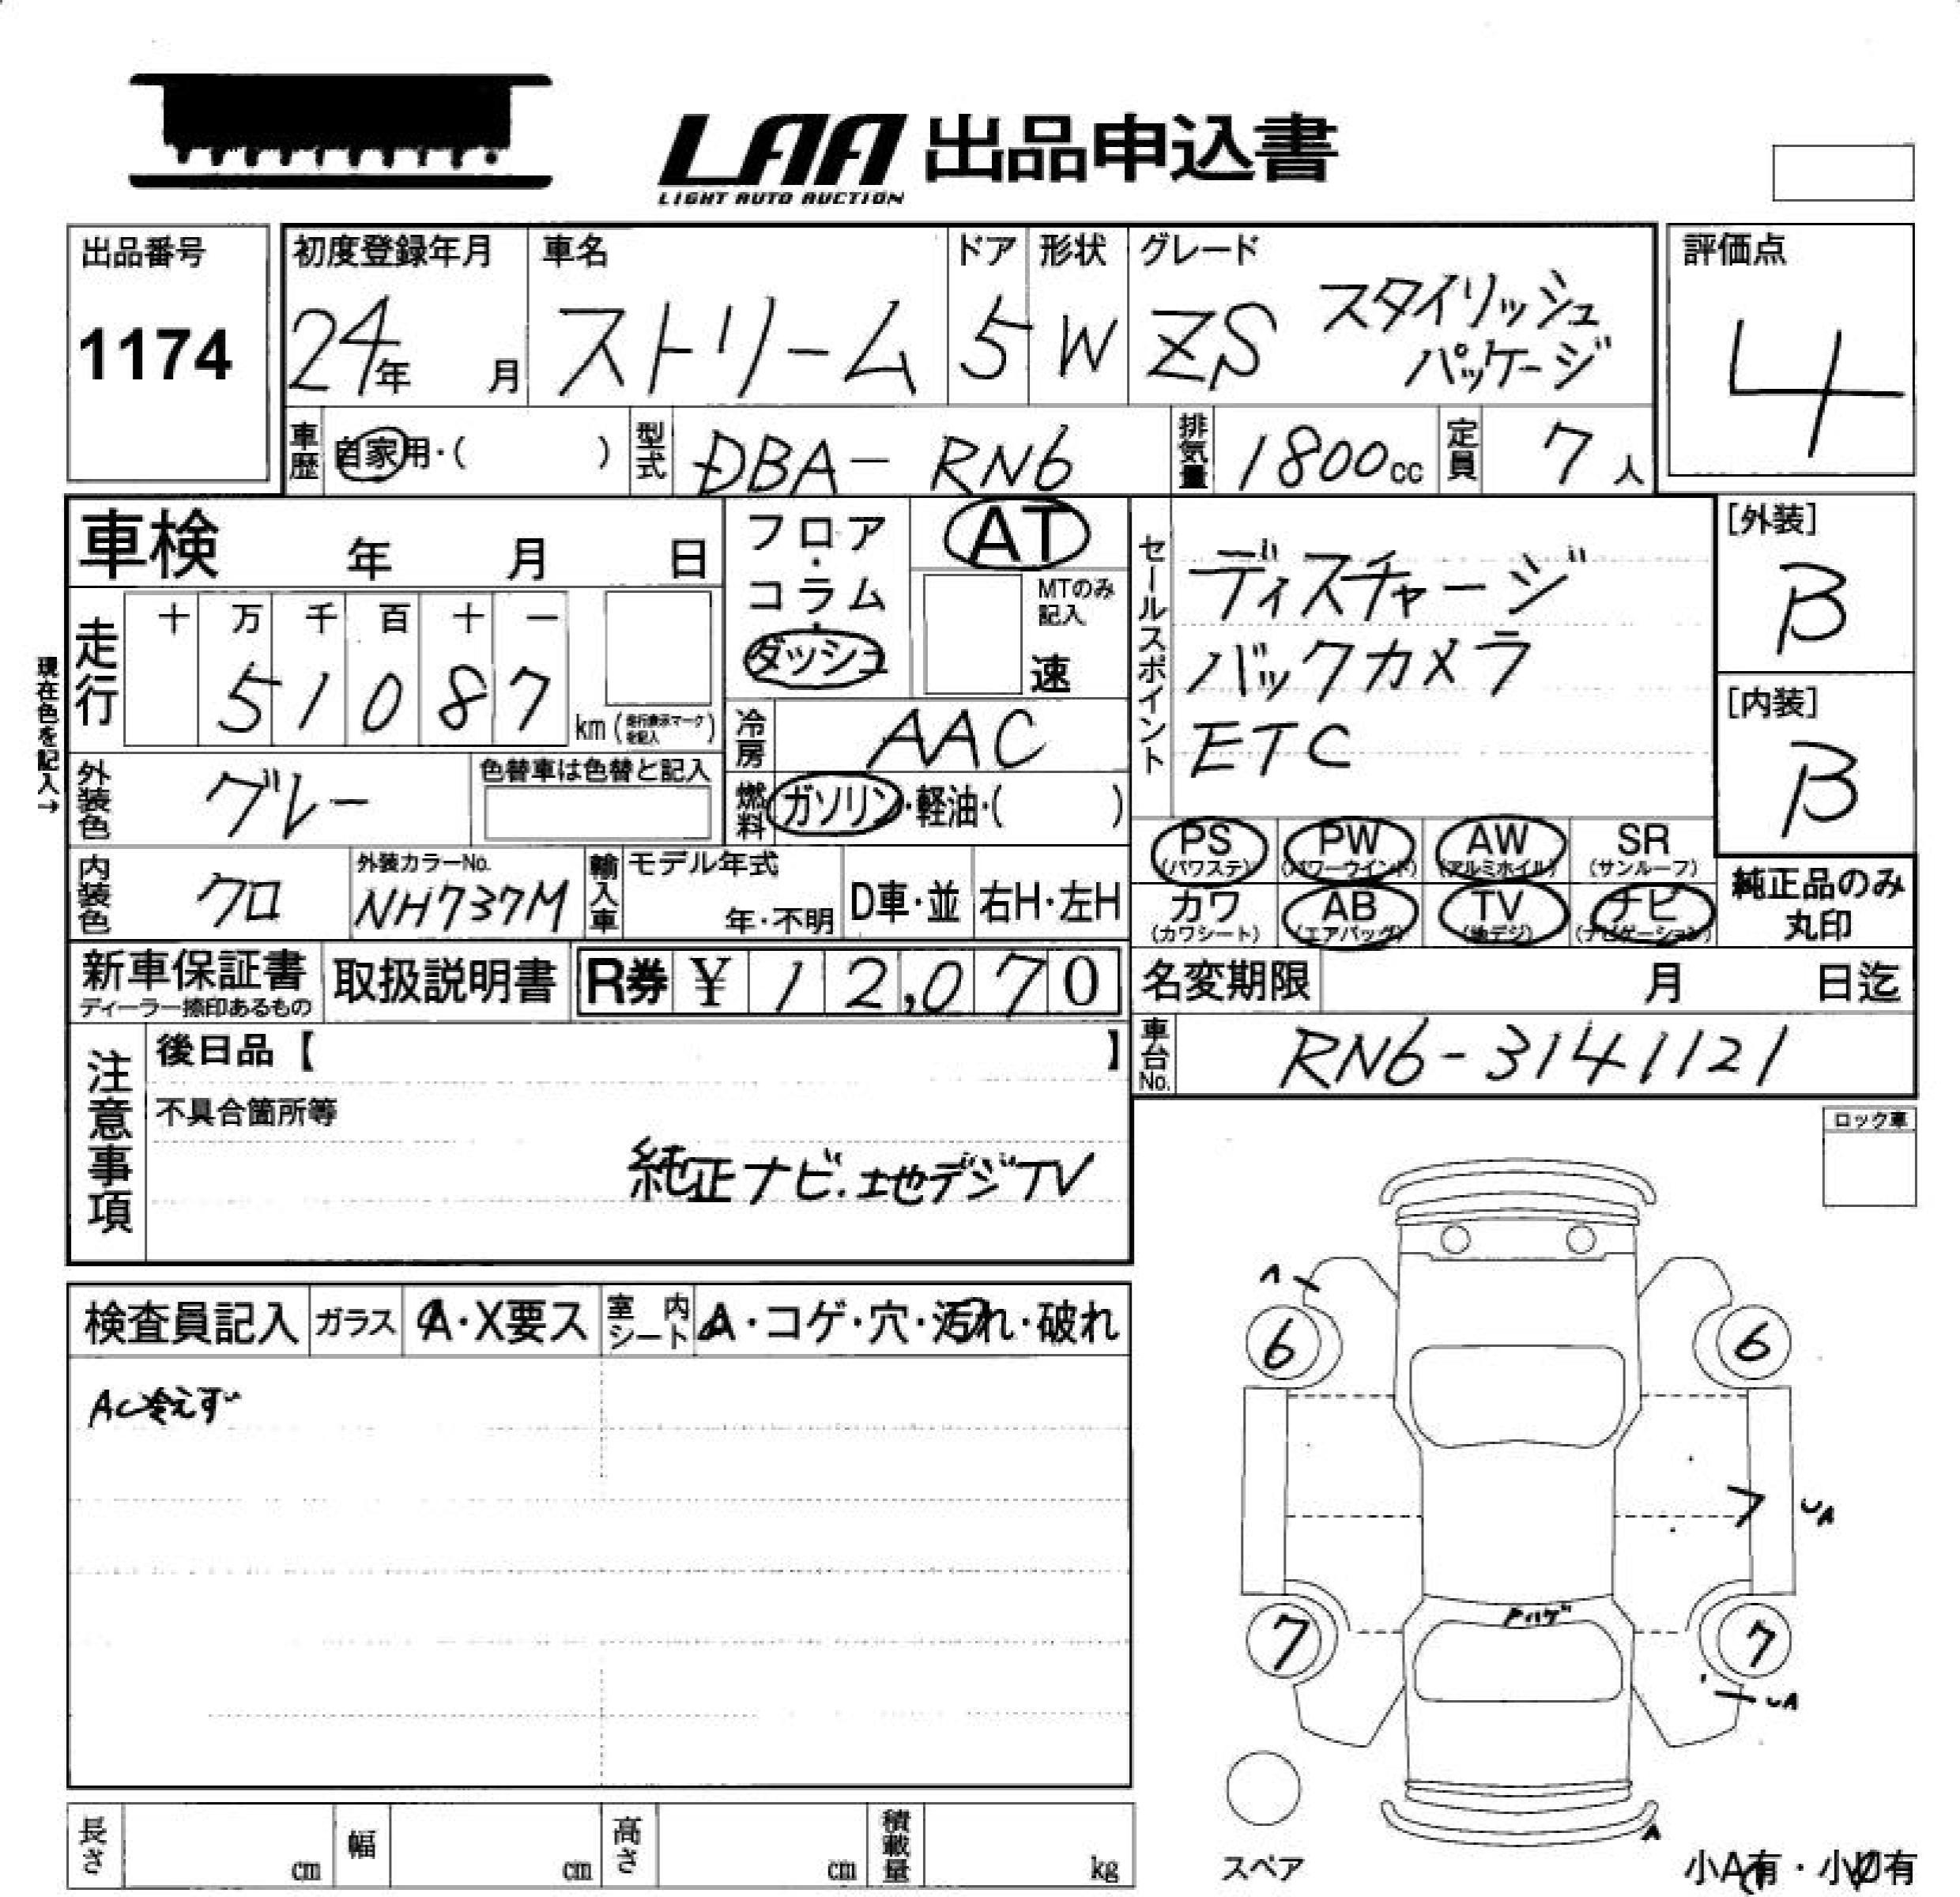 LAA 出品申込書
LIGHT AUTO AUCTION
出品番号
1174
初度登録年月
24年 月
車名
ストリーム
ドア
5
形状
W
グレード
ZS スタイリッシュ
パッケージ
評価点
4
車歴 自家用・( )
型式 DBA- RN6
排気量 1800cc
定員 7人
車検 年 月 日
フロア・コラム・ダッシュ
AT
MTのみ記入
速
セールスポイント
ディスチャージ
バックカメラ
ETC
[外装]
B
[内装]
B
現在色を記入→
走行
十 万 千 百 十 一
5 1 0 8 7 km (走行表示マークを記入)
冷房 AAC
外装色 グレー
色替車は色替と記入
燃料 ガソリン・軽油・( )
PS (パワステ)
PW (パワーウインド)
AW (アルミホイル)
SR (サンルーフ)
カワ (カワシート)
AB (エアバッグ)
TV (地デジ)
ナビ (ナビゲーション)
純正品のみ
丸印
内装色 クロ
外装カラーNo.
NH737M
輸入車
モデル年式
年・不明
D車・並
右H・左H
新車保証書
ディーラー捺印あるもの
取扱説明書
R券 ¥ 12,070
名変期限 月 日迄
車台No. RN6-3141121
注意事項
後日品【 】
不具合箇所等
純正ナビ.地デジTV
ロック車
検査員記入
ガラス A・X要ス
室内シート A・コゲ・穴・汚れ・破れ
AC冷えず
A
6
6
UA
7
7
UA
A
スペア
小A有・小U有
長さ cm
幅 cm
高さ cm
積載量 kg